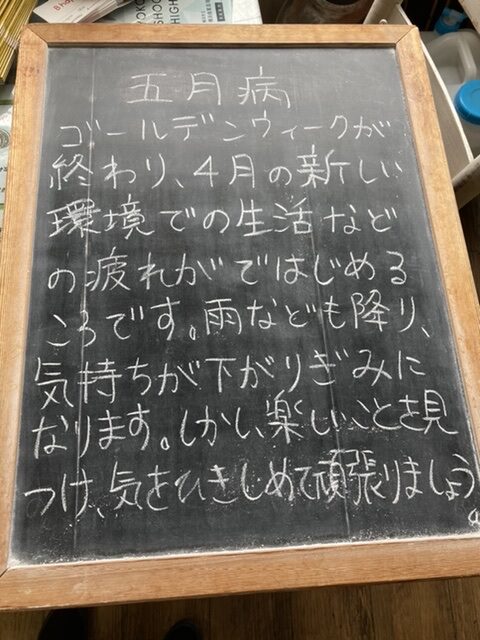 五月病
ゴールデンウィークが
終わり、4月の新しい
環境での生活など
の疲れがではじめる
ころです。雨なども降り、
気持ちが下がりぎみに
なります。しかし、楽しいことを見
つけ、気をひきしめて頑張りましょう。